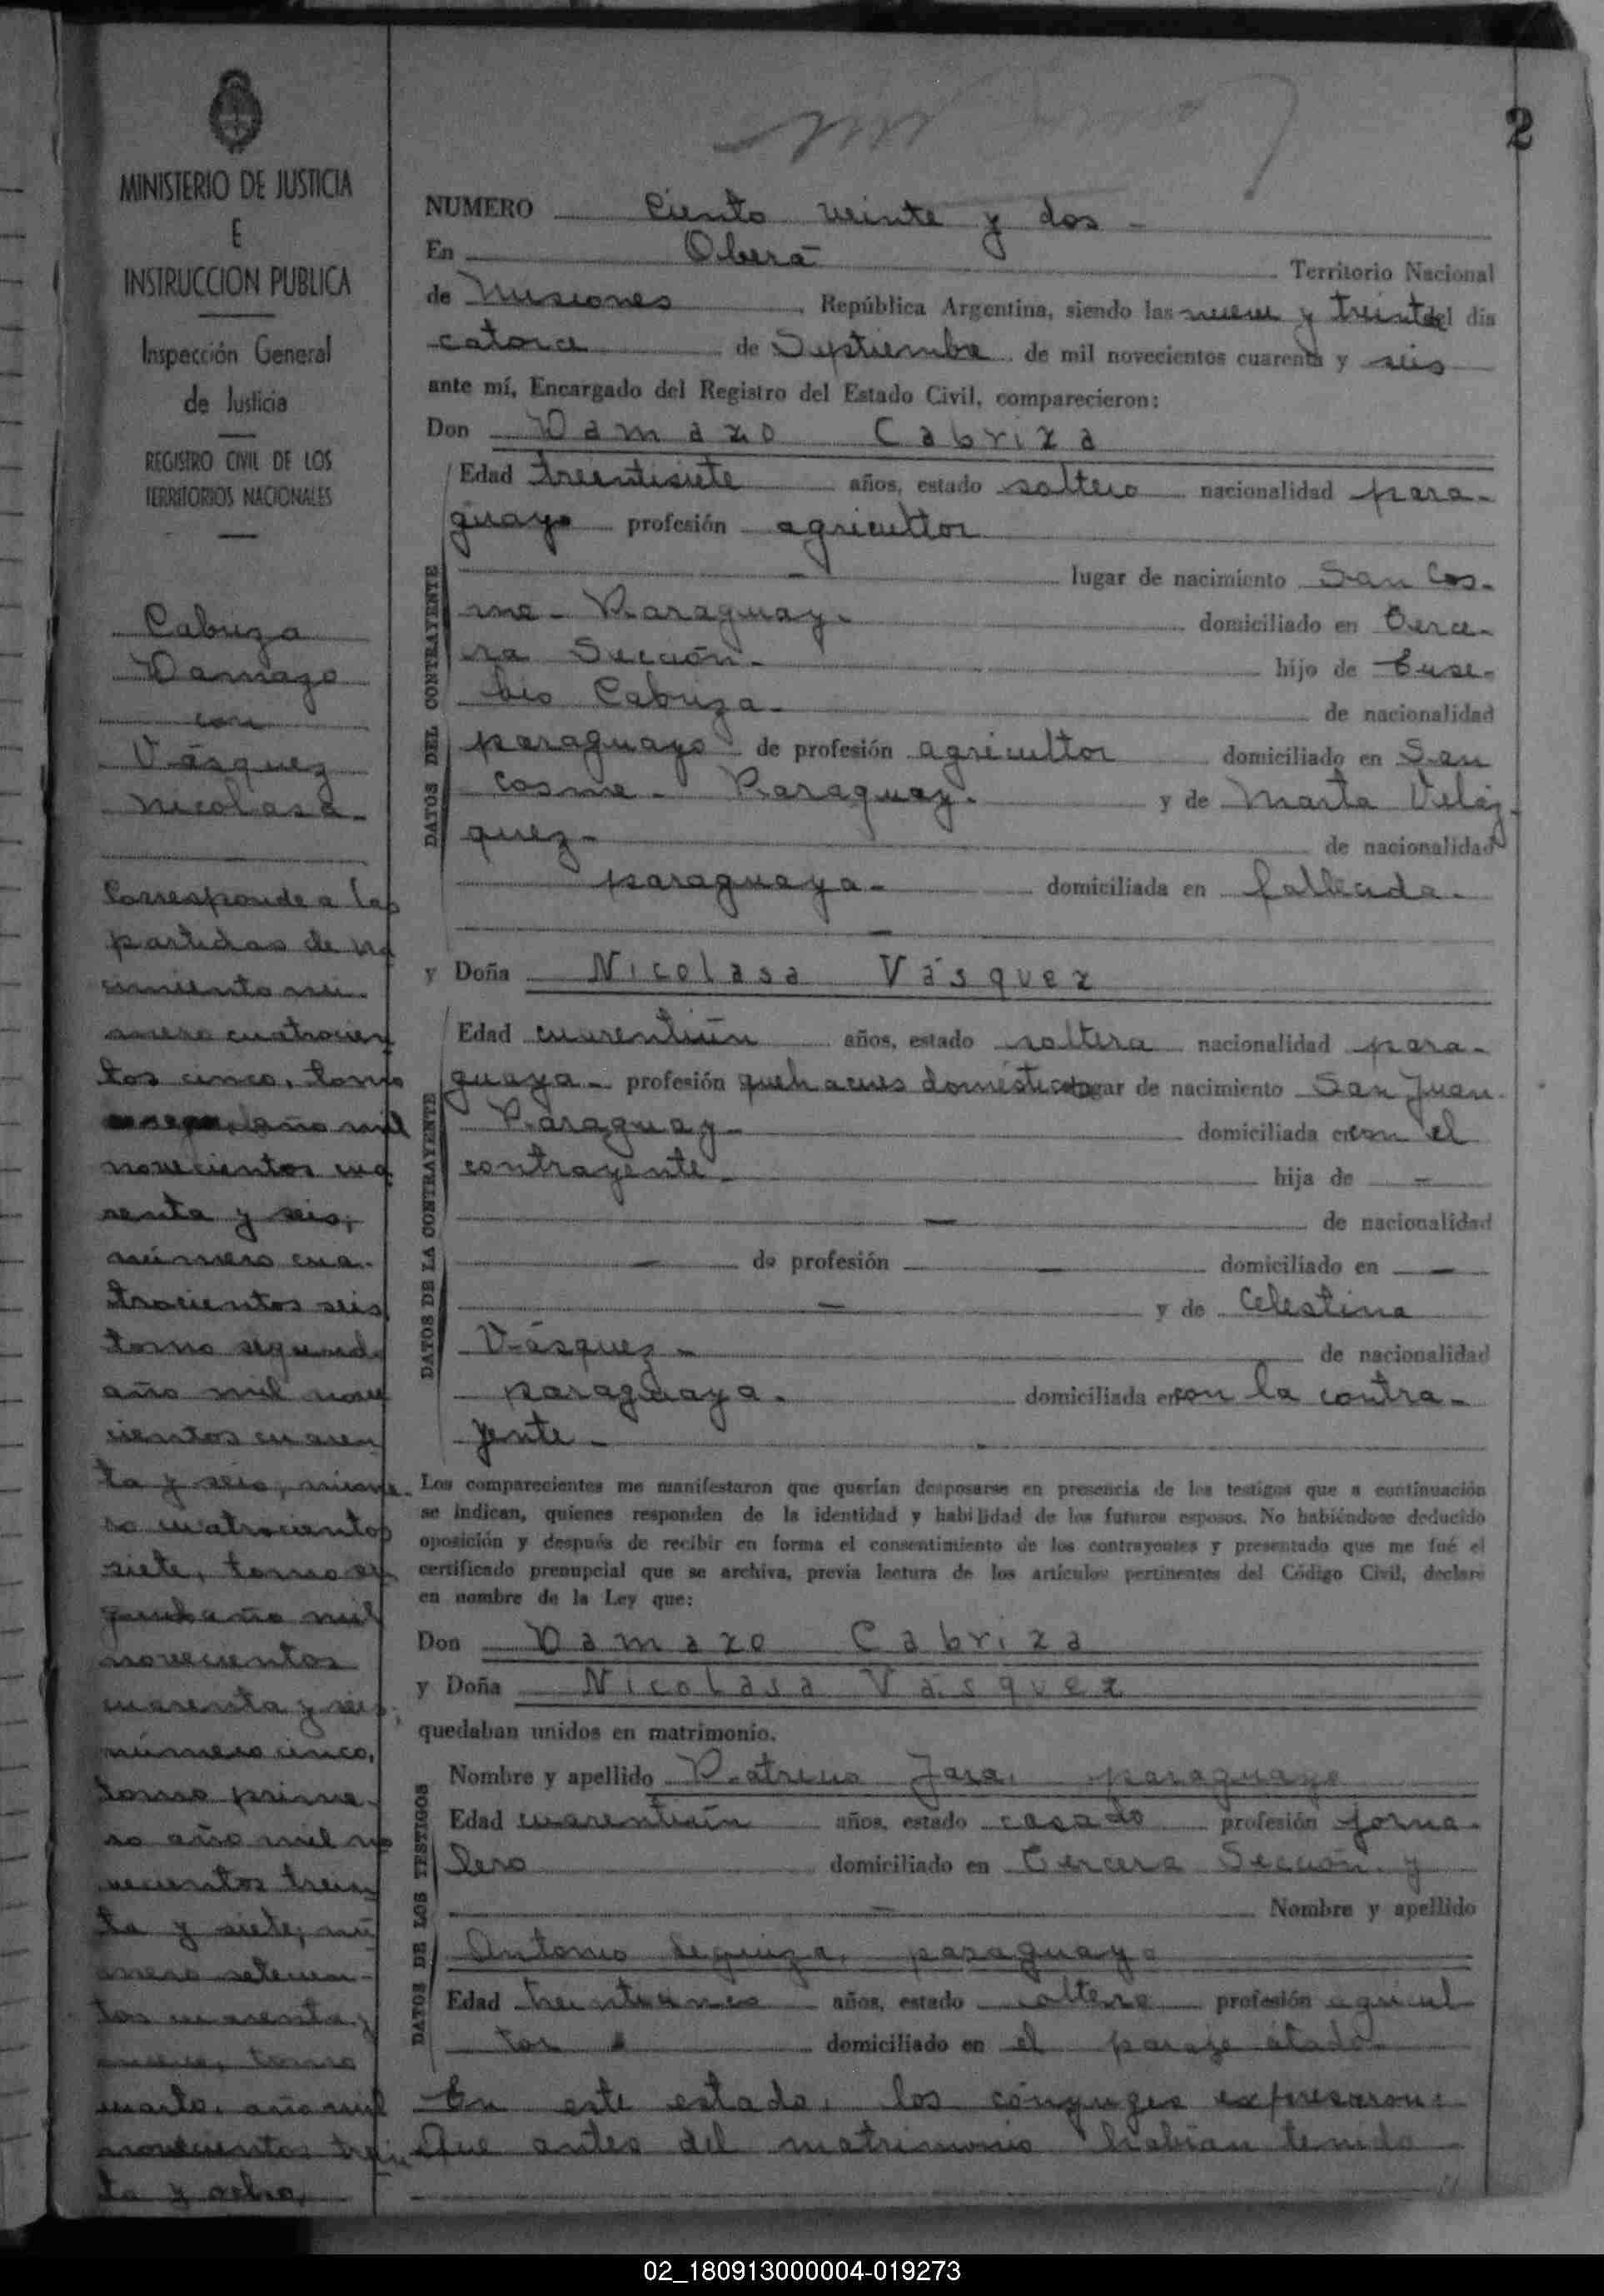 2
MINISTERIO DE JUSTICIA
E
INSTRUCCION PUBLICA
Inspección General
de Justicia
REGISTRO CIVIL DE LOS
TERRITORIOS NACIONALES
Cabriza
Damazo
con
Vásquez
Nicolasa.
Corresponde a las
partidas de na
cimiento nú-
mero cuatrocien
tos cinco, tomo
año mil
novecientos cua
renta y seis;
número cua-
trocientos seis
tomo segundo
año mil nove
cientos cuaren
ta y seis, núme-
ro cuatrocientos
siete, tomo se
gundo año mil
novecientos
cuarenta y seis;
número cinco,
tomo prime-
ro año mil no
vecientos trein
ta y siete, nú
mero setecien-
tos cuarenta y
nueve, tomo
cuarto, año mil
novecientos trein
ta y ocho,
NUMERO Ciento veinte y dos -
En Oberá Territorio Nacional
de Misiones, República Argentina, siendo las nueve y treinta del día
catorce de Septiembre de mil novecientos cuarenta y seis
ante mí, Encargado del Registro del Estado Civil, comparecieron:
Don Damazo Cabriza
DATOS DEL CONTRAYENTE
Edad treintisiete años, estado soltero nacionalidad para-
guayo profesión agricultor
- lugar de nacimiento San Cos-
me - Paraguay. domiciliado en Terce-
ra Sección - hijo de Euse-
bio Cabriza - de nacionalidad
paraguayo de profesión agricultor domiciliado en San
Cosme - Paraguay. y de Marta Veláz-
quez - de nacionalidad
paraguaya - domiciliada en fallecida.
-
y Doña Nicolasa Vásquez
DATOS DE LA CONTRAYENTE
Edad cuarentiún años, estado soltera nacionalidad para-
guaya - profesión quehaceres domésticos lugar de nacimiento San Juan.
Paraguay - domiciliada en con el
contrayente - hija de -
- de nacionalidad
- de profesión - domiciliado en -
- y de Celestina
Vásquez - de nacionalidad
paraguaya. domiciliada en con la contra-
yente -
Los comparecientes me manifestaron que querían desposarse en presencia de los testigos que a continuación
se indican, quienes responden de la identidad y habilidad de los futuros esposos. No habiéndose deducido
oposición y después de recibir en forma el consentimiento de los contrayentes y presentado que me fué el
certificado prenupcial que se archiva, previa lectura de los artículos pertinentes del Código Civil, declaro
en nombre de la Ley que:
Don Damazo Cabriza
y Doña Nicolasa Vásquez
quedaban unidos en matrimonio.
DATOS DE LOS TESTIGOS
Nombre y apellido Patricio Jara, paraguayo
Edad cuarentiún años, estado casado profesión jorna-
lero domiciliado en Tercera Sección y
- Nombre y apellido
Antonio paraguayo
Edad años, estado soltero profesión agricul
tor domiciliado en el paraje citado
En este estado, los cónyuges expresaron:
Que antes del matrimonio habían tenido -
02_180913000004-019273